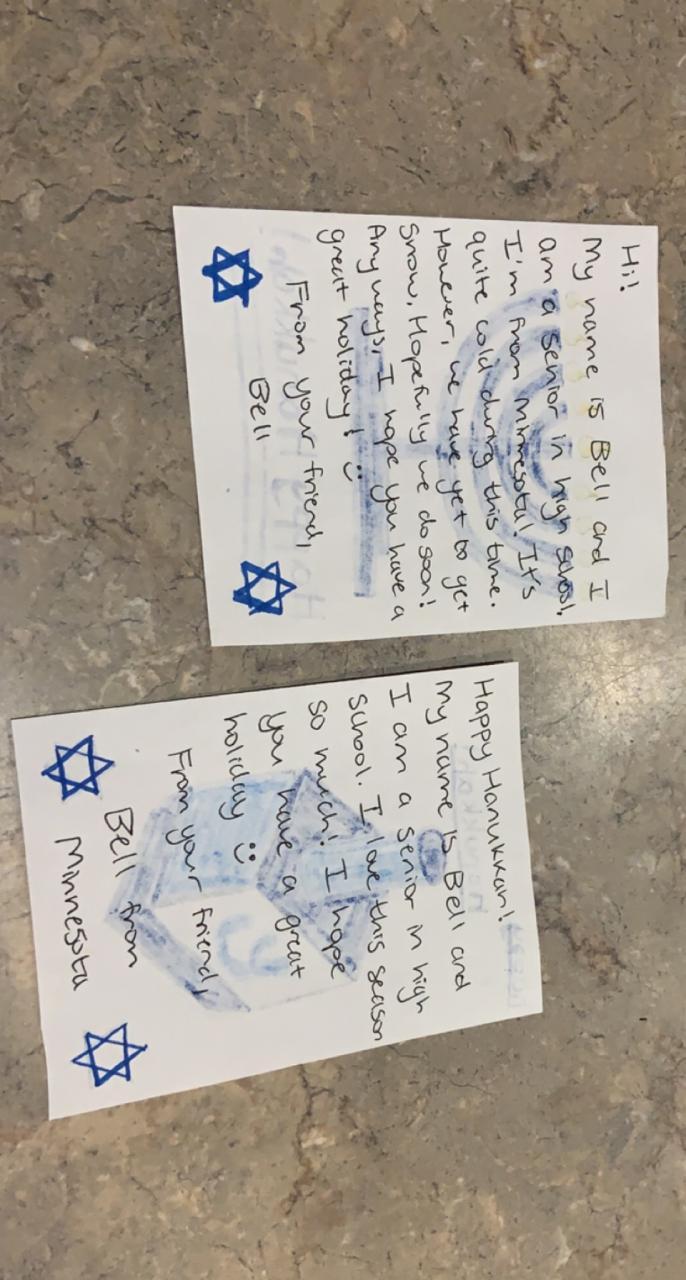 Hi!
My name is Bell and I
am a senior in high school.
I'm from Minnesota! It's
quite cold during this time.
However, we have yet to get
snow. Hopefully we do soon!
Any ways, I hope you have a
great holiday! :)
From your friend,
Bell
Happy Hanukkah!
My name is Bell and
I am a senior in high
school. I love this season
so much! I hope
you have a great
holiday :)
From your friend,
Bell from
Minnesota